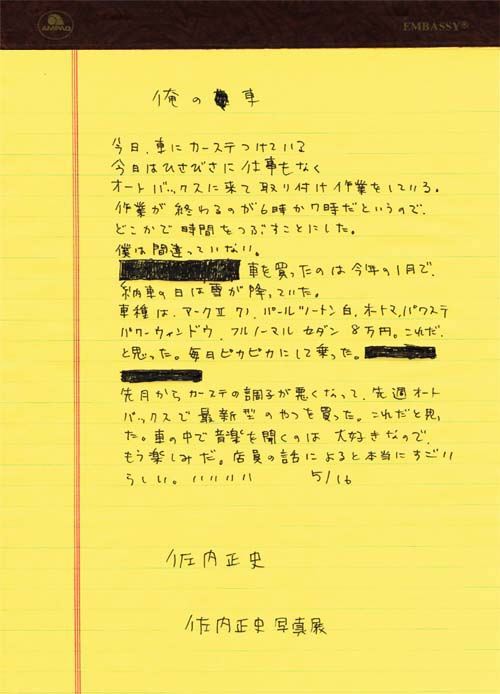 AMPAD
EMBASSY®
俺の車
今日、車にカーステつけている
今日はひさびさに仕事もなく
オートバックスに来て取り付け作業をしている。
作業が終わるのが6時か7時だというので、
どこかで時間をつぶすことにした。
僕は間違っていない。
車を買ったのは今年の1月で、
納車の日は雪が降っていた。
車種は、マークⅡ パールツートン白、オートマ、パワステ
パワーウィンドウ、フルノーマルセダン 8万円。これだ、
と思った。毎日ピカピカにして乗った。
先月からカーステの調子が悪くなって、先週オート
バックスで最新型のやつを買った。これだと思っ
た。車の中で音楽を聞くのは大好きなので、
もう楽しみだ。店員の話によると本当にすごい
らしい。 5/16
佐内正史
佐内正史写真展